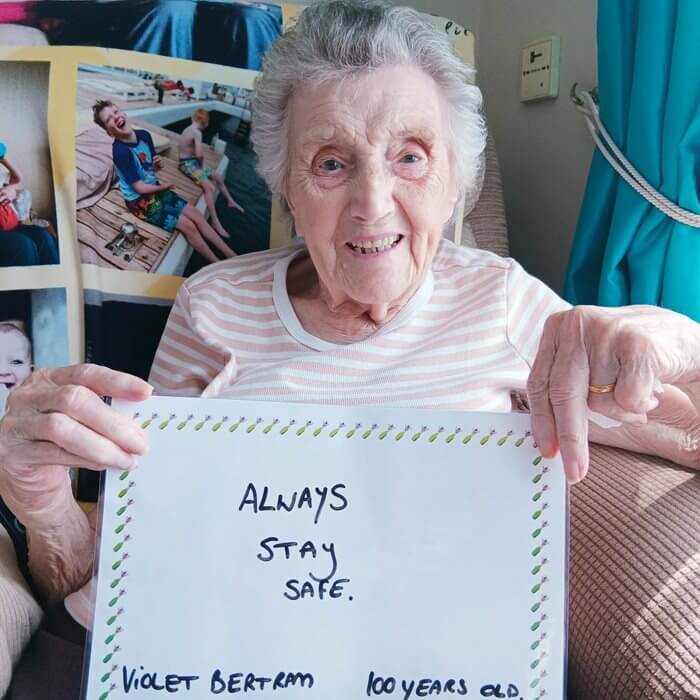 ALWAYS
STAY
SAFE.
VIOLET BERTRAM 100 YEARS OLD.